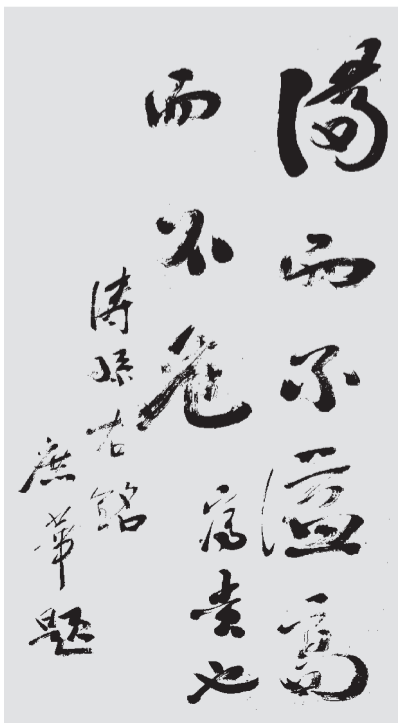 滿而不溢高
而不危富貴也
濤孫右銘
庶華題